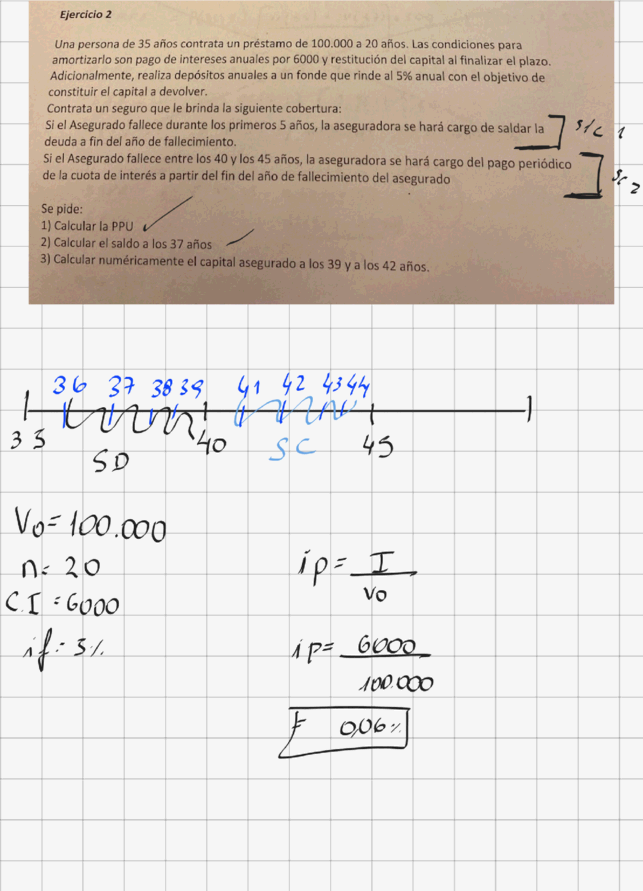 Ejercicio 2
Una persona de 35 años contrata un préstamo de 100.000 a 20 años. Las condiciones para
amortizarlo son pago de intereses anuales por 6000 y restitución del capital al finalizar el plazo.
Adicionalmente, realiza depósitos anuales a un fonde que rinde al 5% anual con el objetivo de
constituir el capital a devolver.
Contrata un seguro que le brinda la siguiente cobertura:
Si el Asegurado fallece durante los primeros 5 años, la aseguradora se hará cargo de saldar la
deuda a fin del año de fallecimiento.
Si el Asegurado fallece entre los 40 y los 45 años, la aseguradora se hará cargo del pago periódico
de la cuota de interés a partir del fin del año de fallecimiento del asegurado
Se pide:
1) Calcular la PPU
2) Calcular el saldo a los 37 años
3) Calcular numéricamente el capital asegurado a los 39 y a los 42 años.
36 37 38 39 41 42 43 44
35 SD 40 SC 45
Vo = 100.000
n = 20
C.I = 6000
if = 5%
ip = I
Vo
ip = 6000
100.000
0,06%